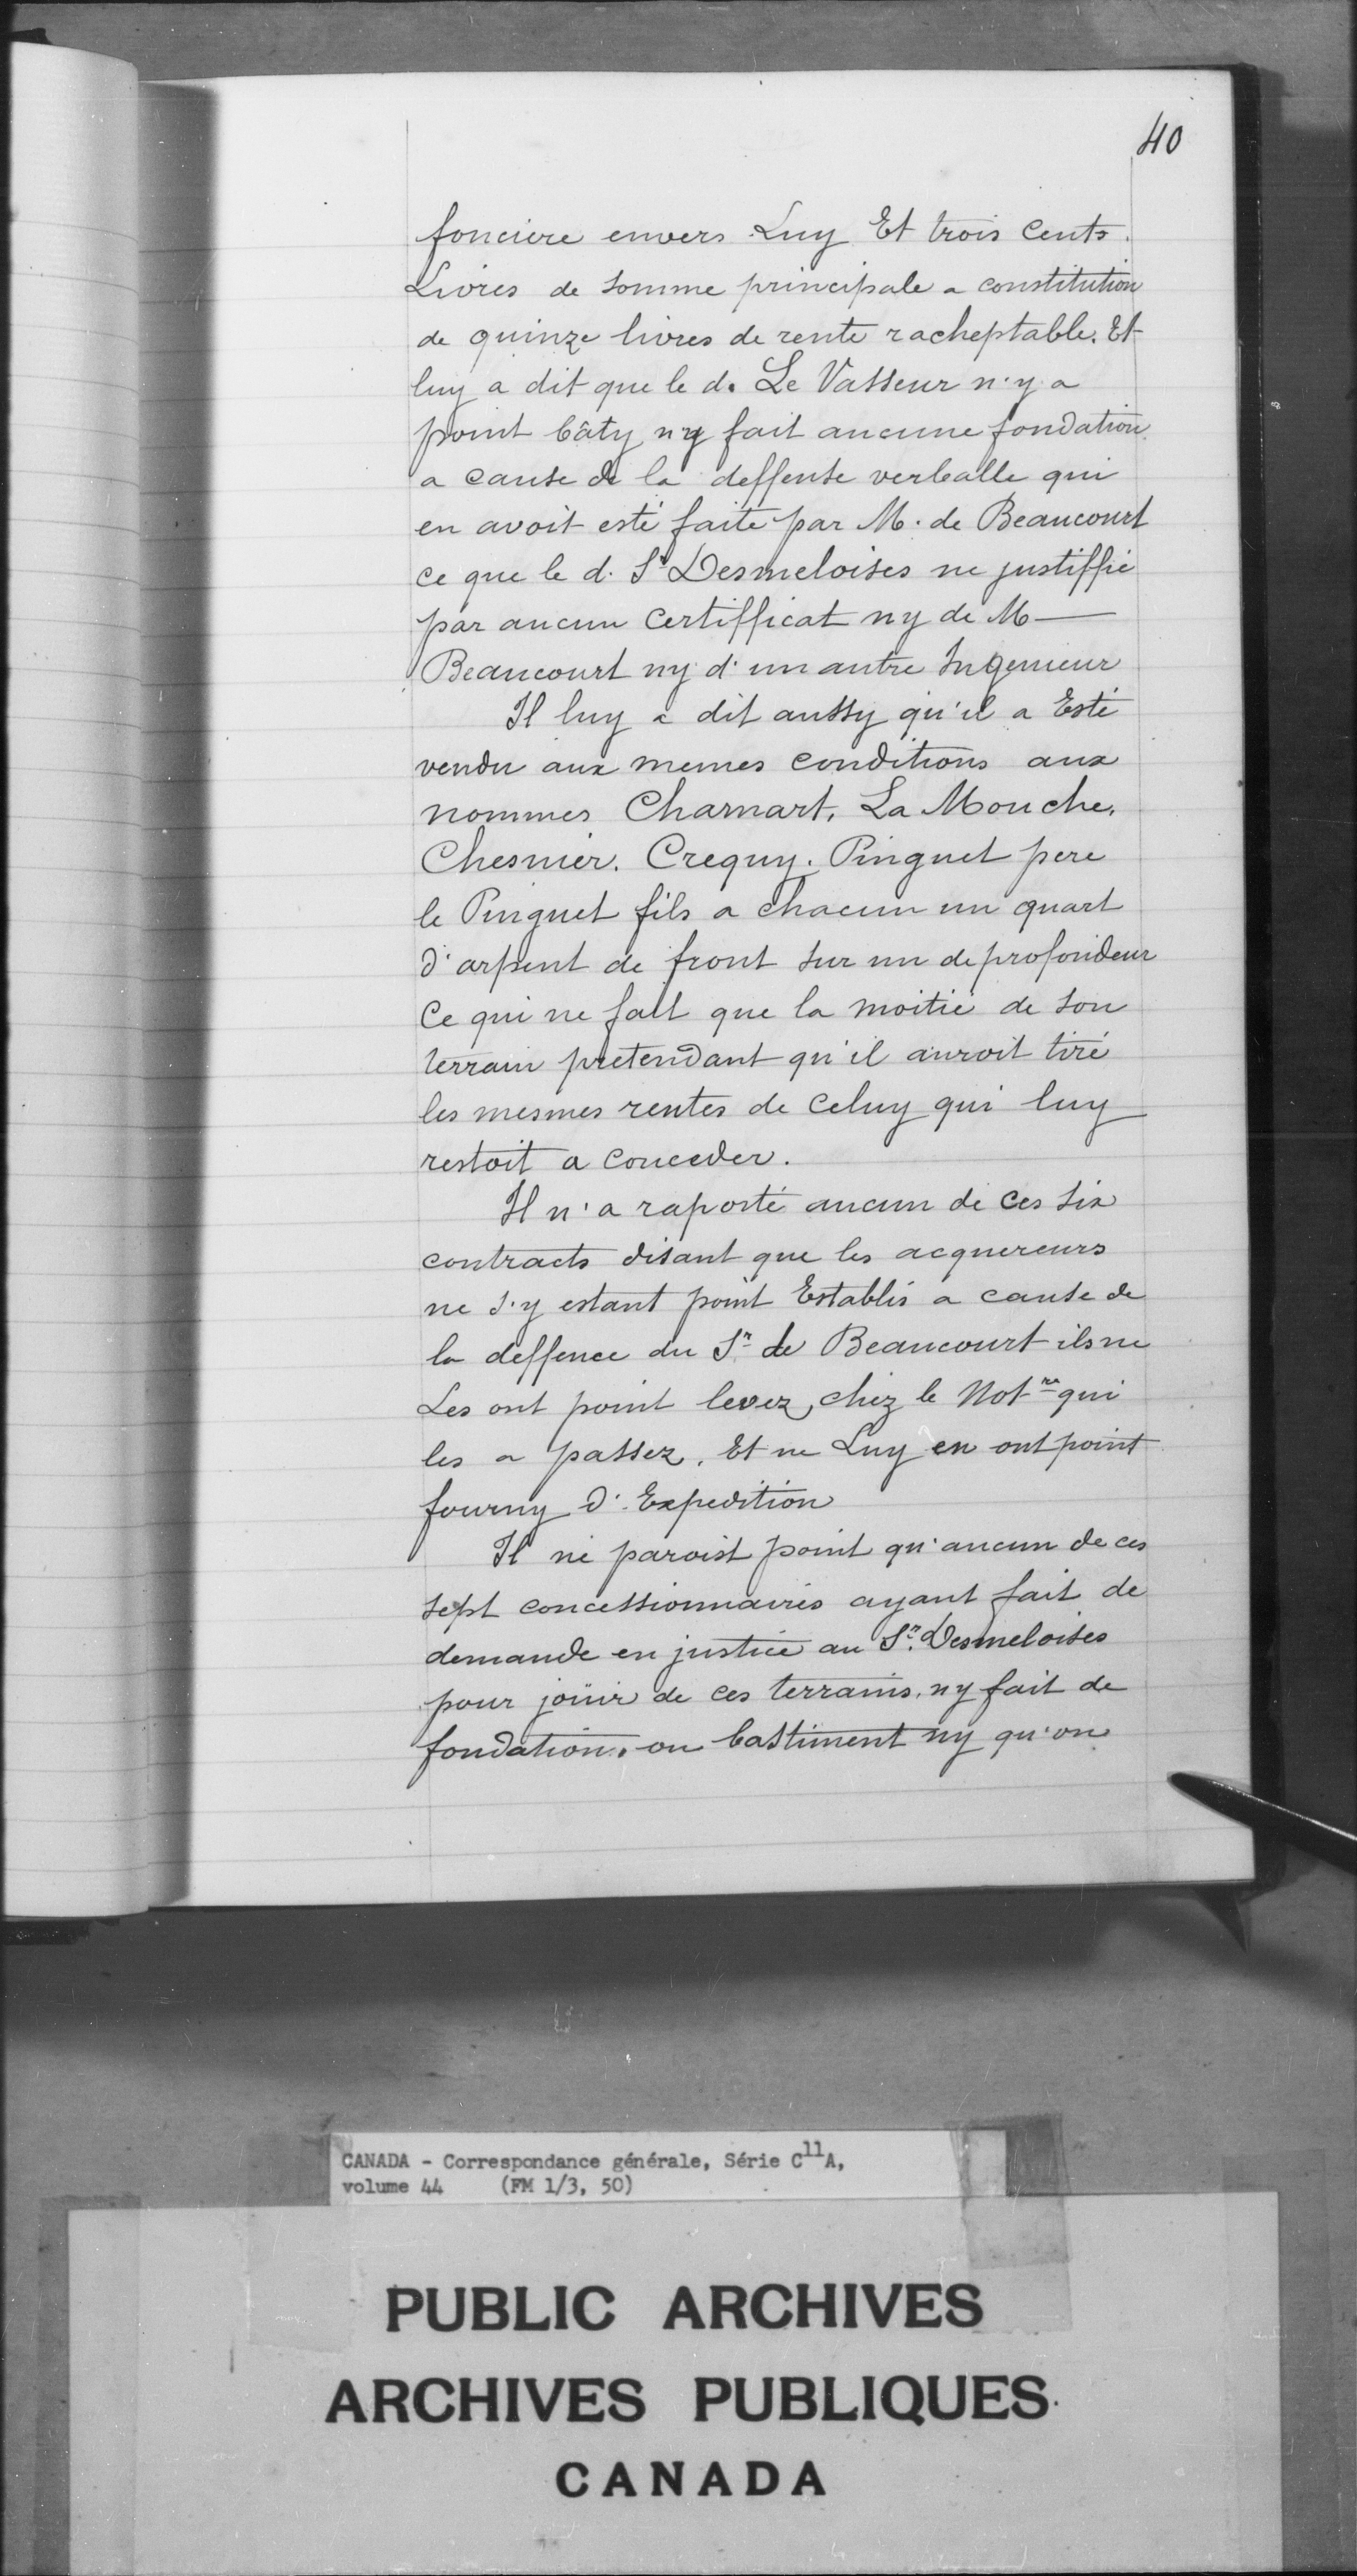 40
fonciere envers Luy Et trois Cents
Livres de somme principale a constitution
de quinze livres de rente racheptable. Et
luy a dit que le d. Le Vasseur n'y a
point bâty ny fait aucune fondation
a cause de la deffense verballe qui
en avoit esté faite par M. de Beaucourt
ce que le d. Sr Desmeloises ne justiffie
par aucun Certifficat ny de M—
Beaucourt ny d'un autre Ingenieur
Il luy a dit aussy qu'il a Esté
vendu aux memes conditions aux
nommes Charnart, La Mouche,
Chesnier. Crequy. Pinguet pere
le Pinguet fils a chacun un quart
d'arpent de front sur un de profondeur
Ce qui ne fait que la moitié de son
terrain pretendant qu'il auroit tiré
les mesmes rentes de Celuy qui luy
restoit a conceder.
Il n'a raporté aucun de ces six
contracts disant que les acquereurs
ne s'y estant point Establis a cause de
la deffence du Sr de Beaucourt ils ne
Les ont point levez, chez le Notre qui
les a passez. Et ne Luy en ont point
fourny d'Expedition
Il ne paroist point qu'aucun de ces
sept concessionnaires ayant fait de
demande en justice au Sr. Desmeloises
pour joüir de ces terrains, ny fait de
fondation, ou bastiment ny qu'on
CANADA - Correspondance générale, Série C11A,
volume 44 (FM 1/3, 50)
PUBLIC ARCHIVES
ARCHIVES PUBLIQUES
CANADA